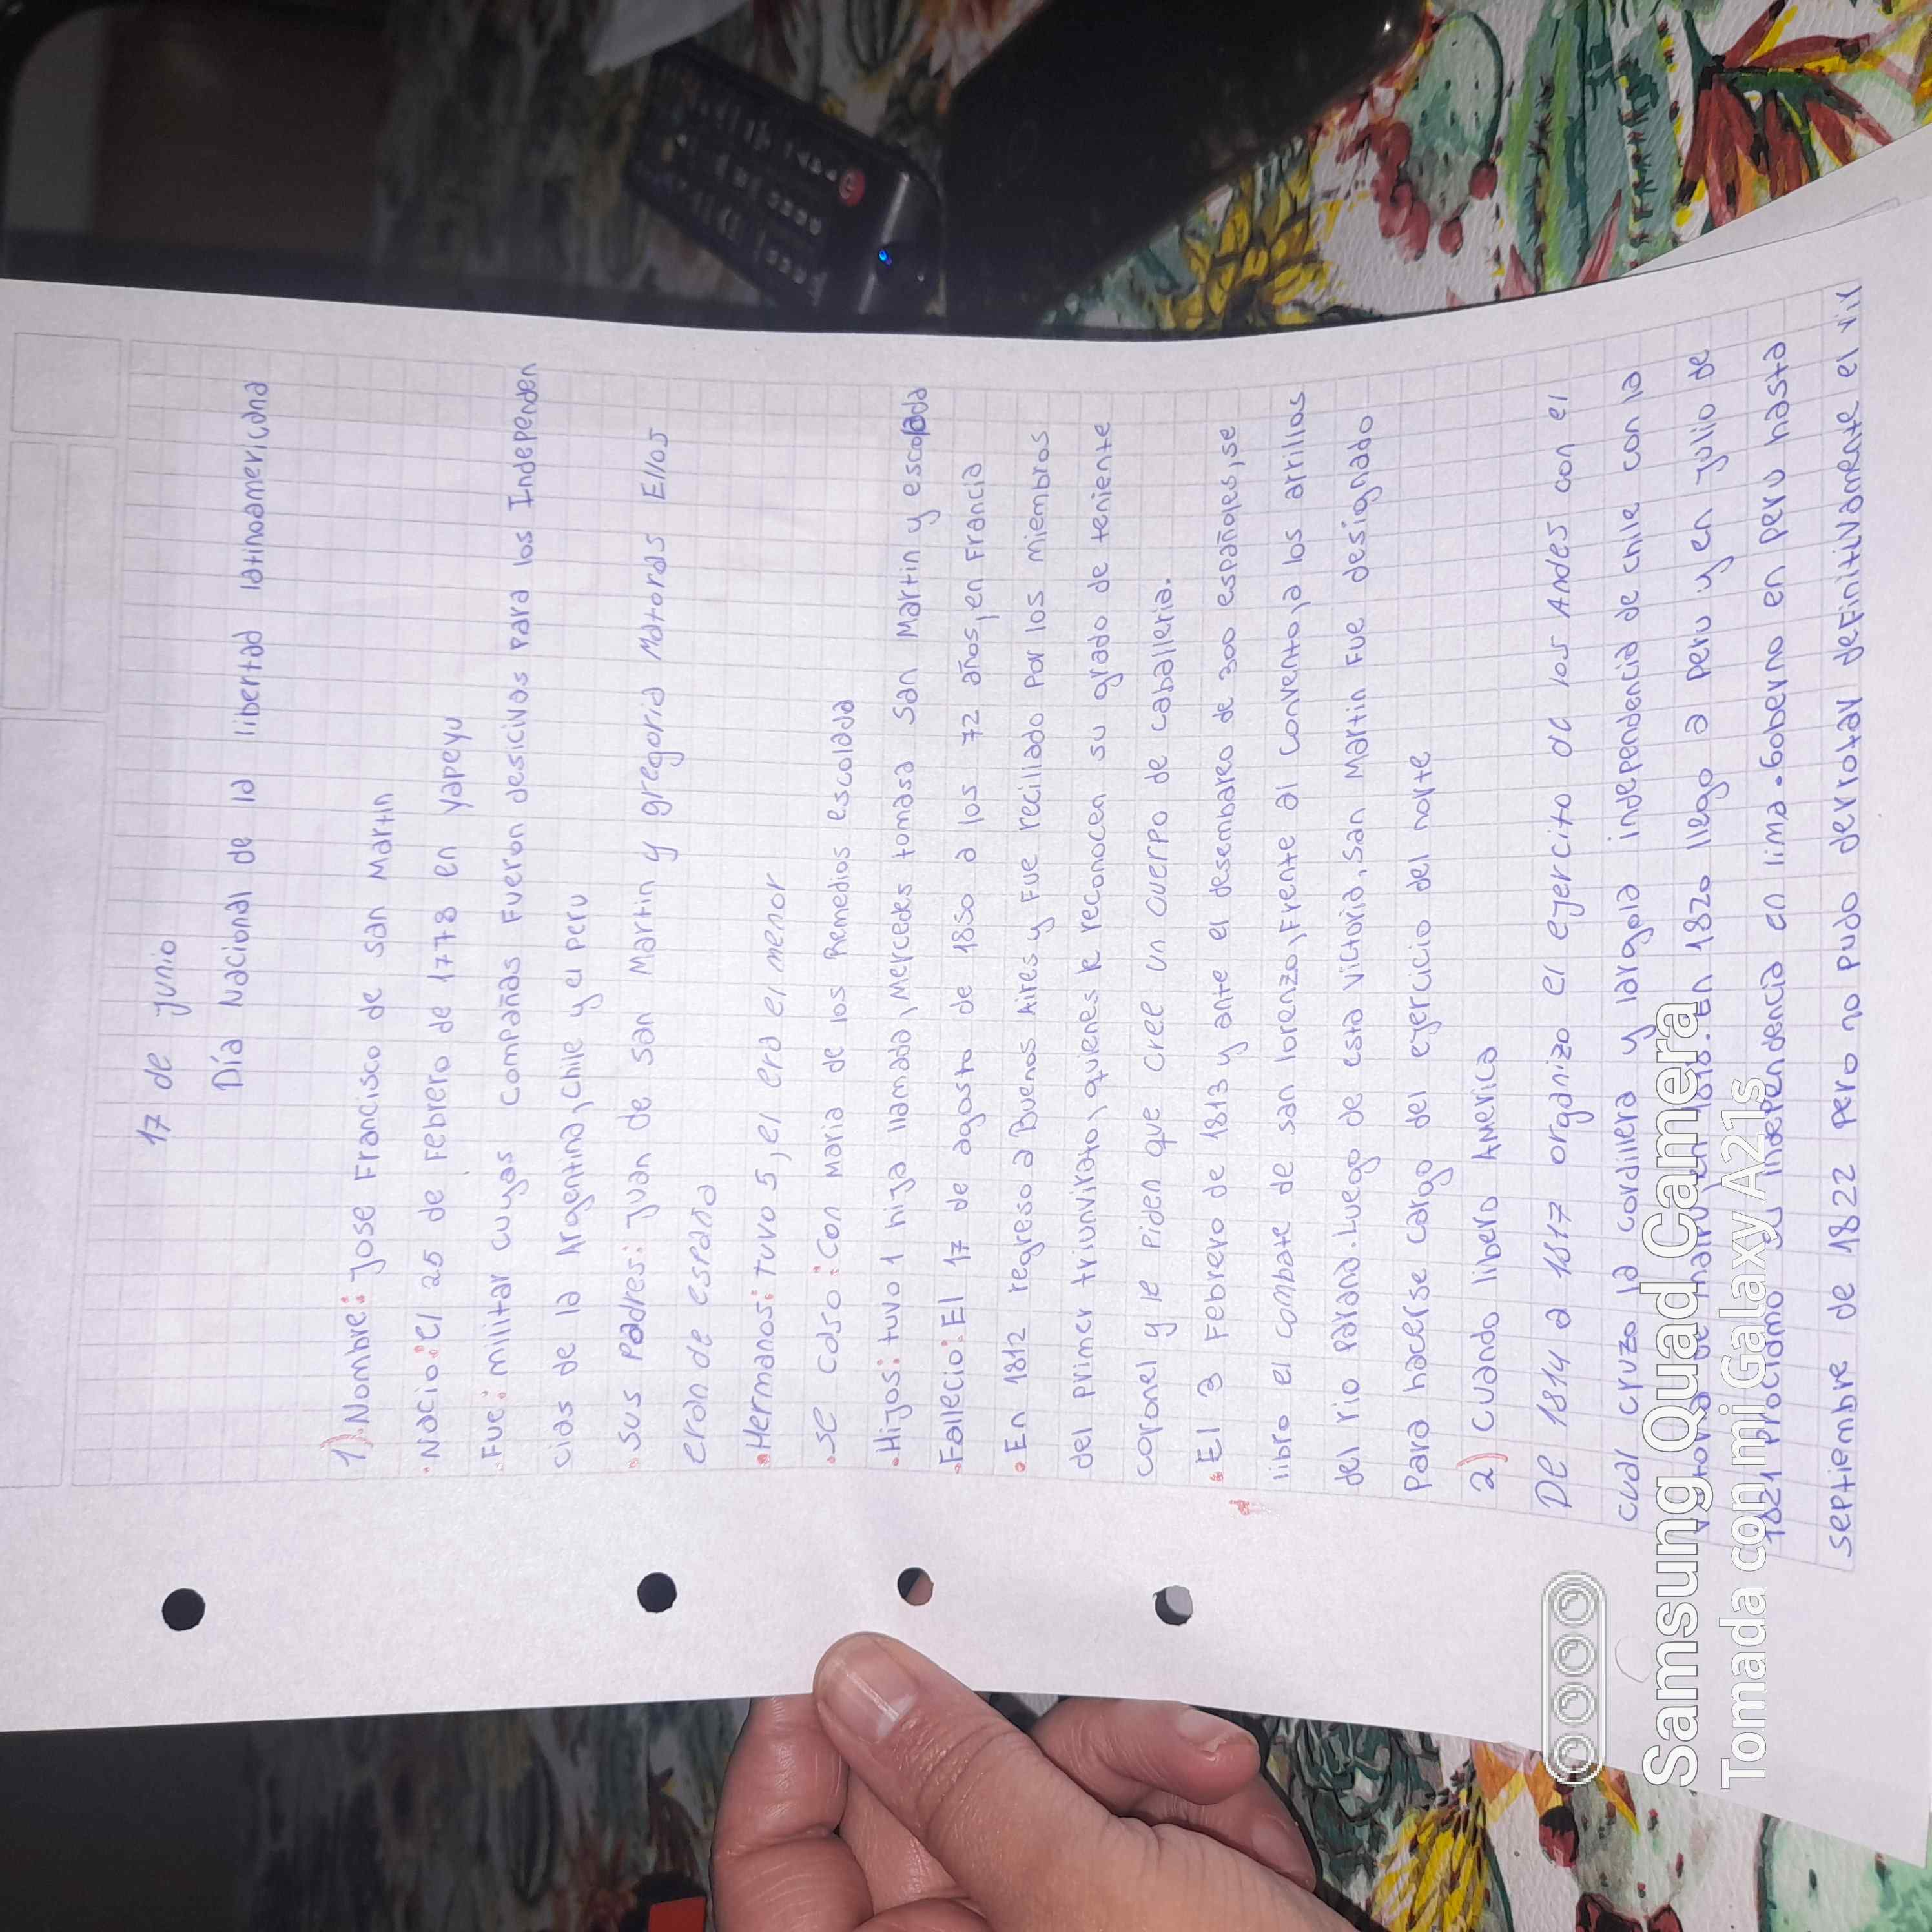 17 de junio
Día Nacional de la libertad latinoamericana
1) Nombre: jose Francisco de san Martin
Nacio: el 25 de Febrero de 1778 en yapeyu
Fue: militar cuyas compañas Fueron desicivos para los Independen
cias de la Argentina, chile y el peru
sus padres: juan de san Martin y gregoria Matoras Ellos
eran de españa
Hermanos: tuvo 5, el era el menor
se caso: con maria de los Remedios escalada
Hijos: tuvo 1 hija llamada, Mercedes tomasa san Martin y escalada
Fallecio: El 17 de agosto de 1850 a los 72 años, en Francia
En 1812 regreso a Buenos Aires y Fue recillado por los miembros
del primer triunvirato, quienes le reconocen su grado de teniente
coronel y le piden que cree un cuerpo de caballeria.
El 3 Febrero de 1813 y ante el desembarco de 300 españoles, se
libro el combate de san lorenzo, Frente al convento, a los arrillos
del rio parana. Luego de esta victoria, san Martin Fue designado
para hacerse cargo del ejercicio del norte
2) cuando libero America
De 1814 a 1817 organizo el ejercito de los Andes con el
cual cruzo la cordillera y largola independencia de chile con la
de en 1818. En 1820 llego a peru y en julio de
1821 proclamo su independencia en lima. Goberno en peru hasta
septiembre de 1822 pero no pudo derrotar definitivamente el vir
Samsung Quad Camera
Tomada con mi Galaxy A21s